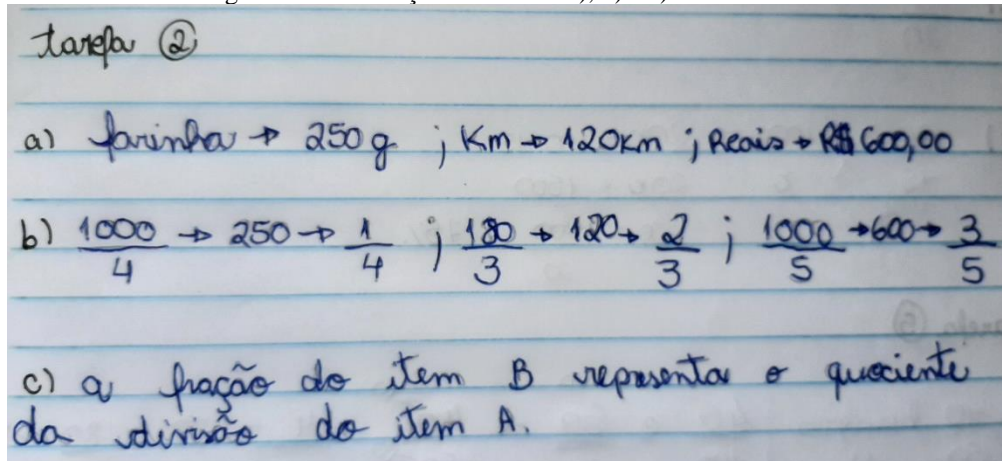 tarefa ②
a) farinha → 250 g ; Km → 120 Km ; Reais → R$ 600,00
b) 1000/4 → 250 → 1/4 ; 180/3 → 120 → 2/3 ; 1000/5 → 600 → 3/5
c) a fração do item B representa o quociente
da divisão do item A.